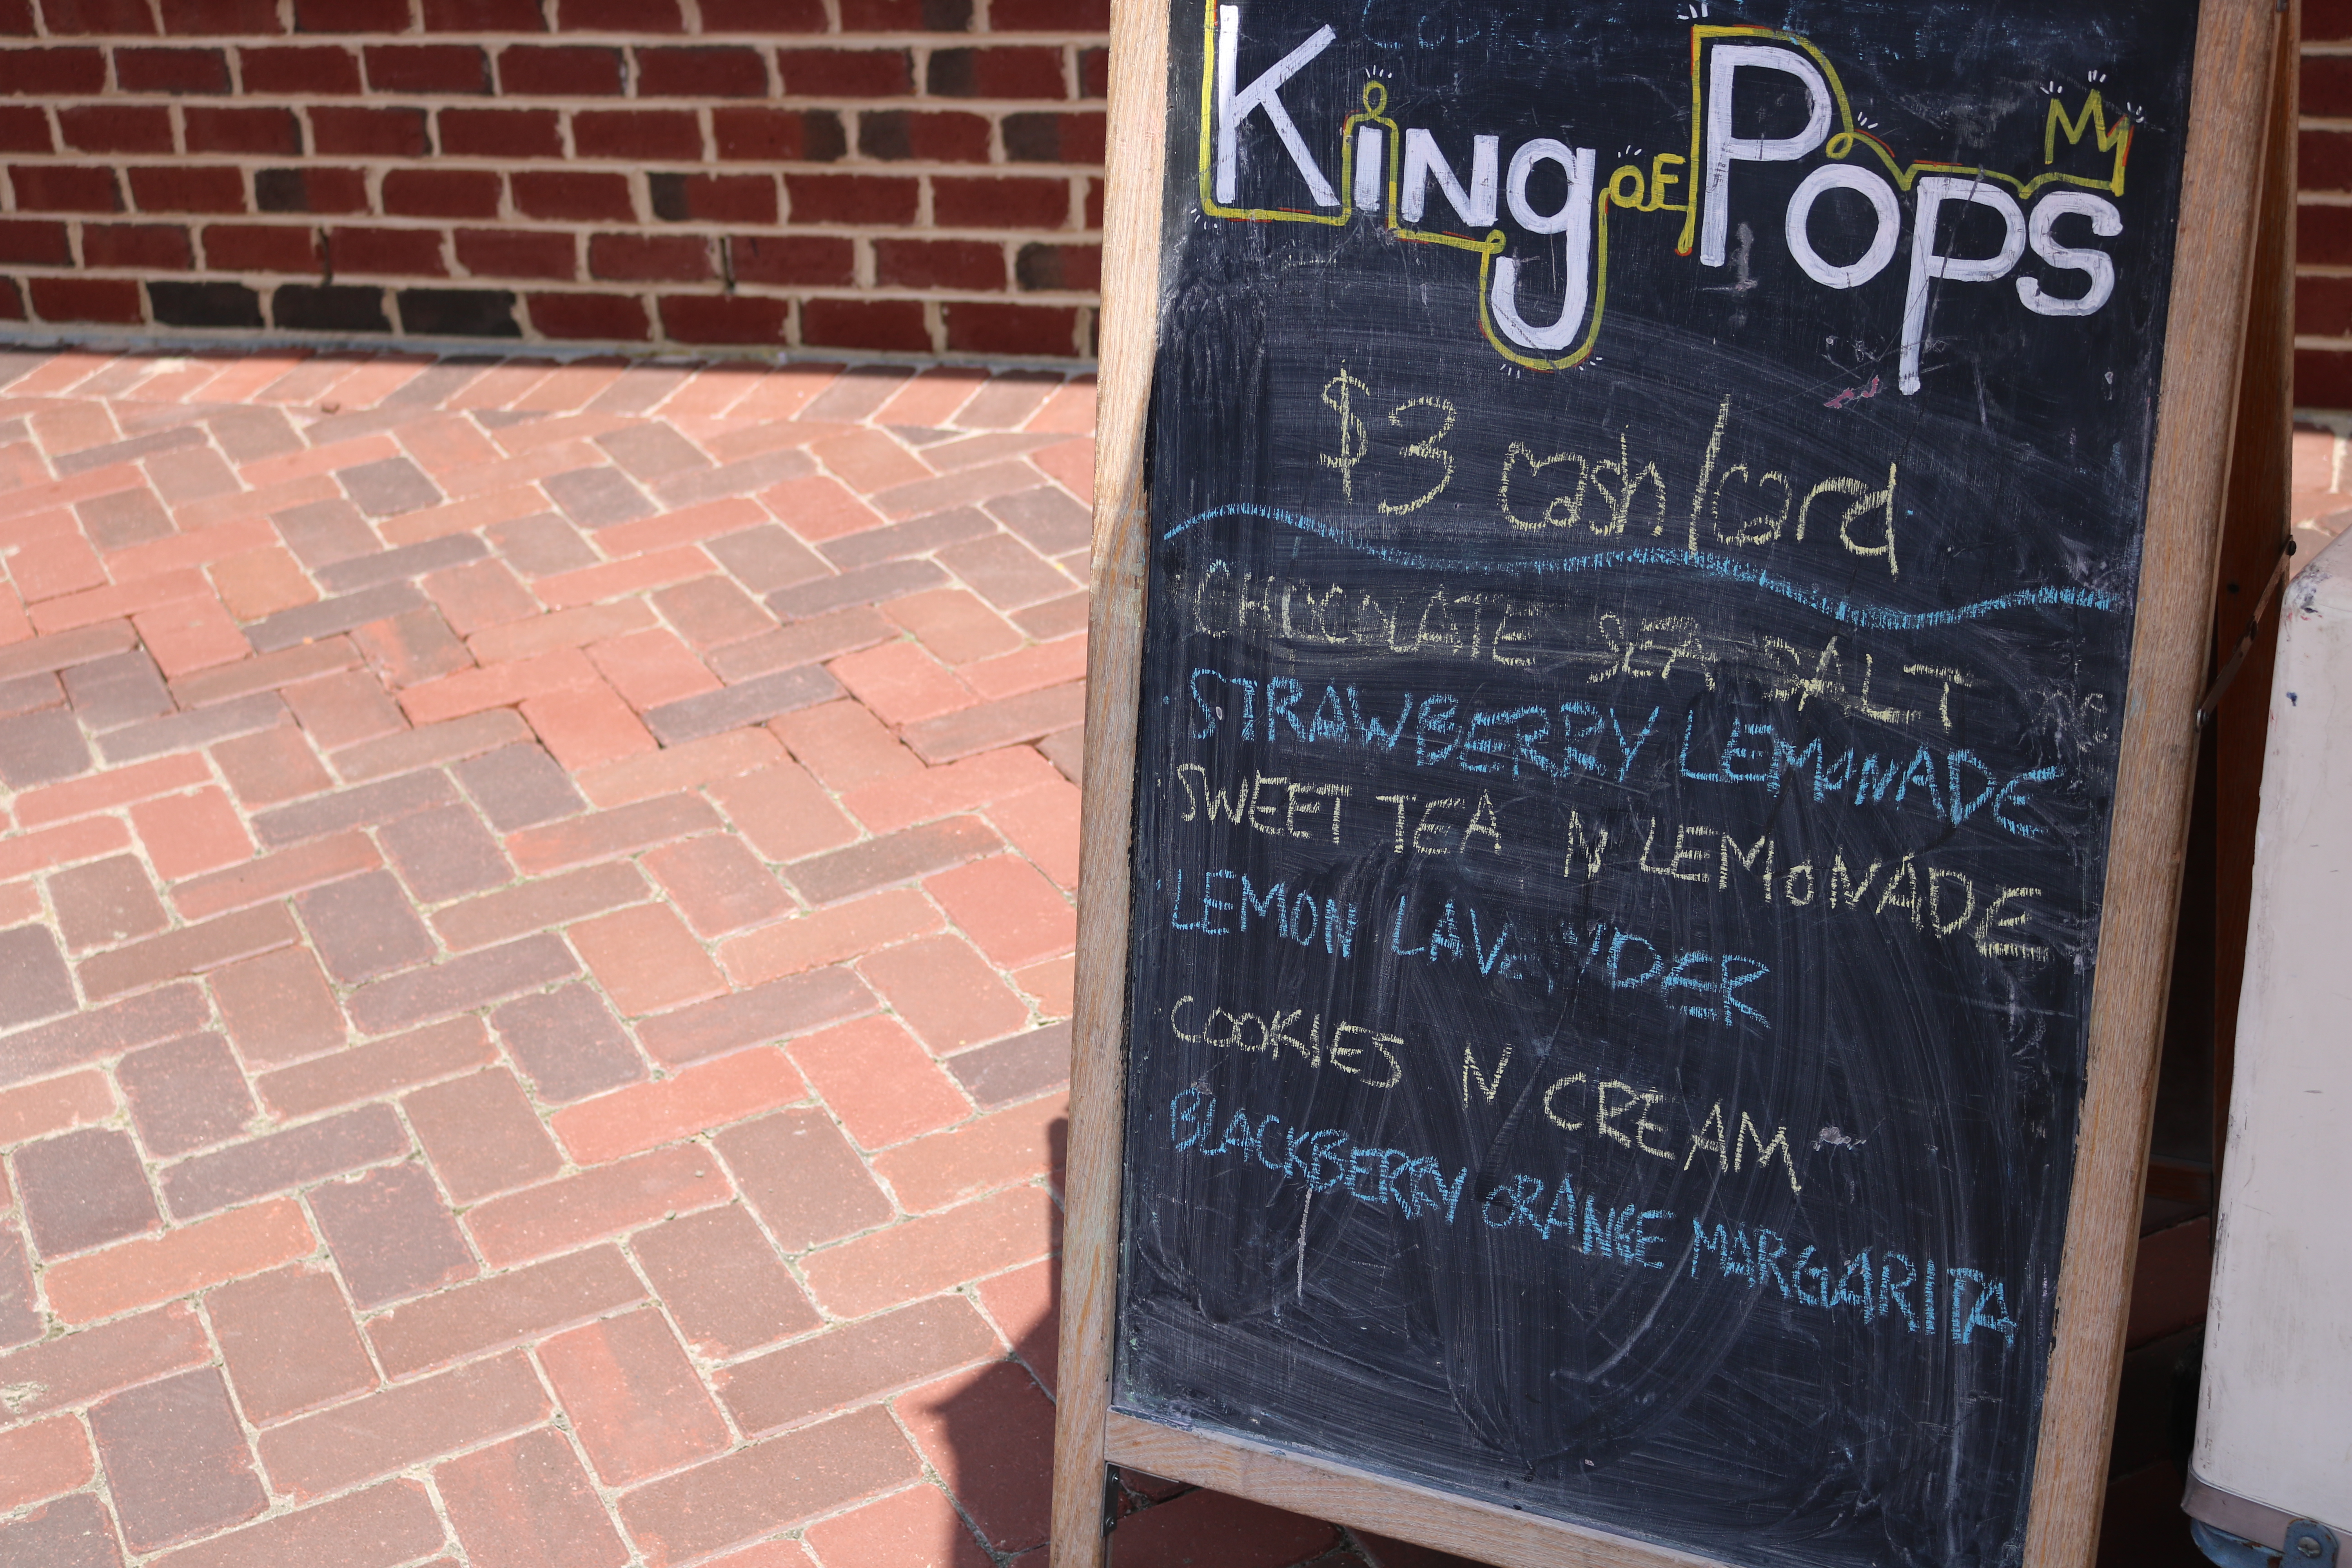 King of Pops
$3 cash/card
CHOCOLATE SEA SALT
STRAWBERRY LEMONADE
SWEET TEA N LEMONADE
LEMON LAVENDER
COOKIES N CREAM
BLACKBERRY ORANGE MARGARITA